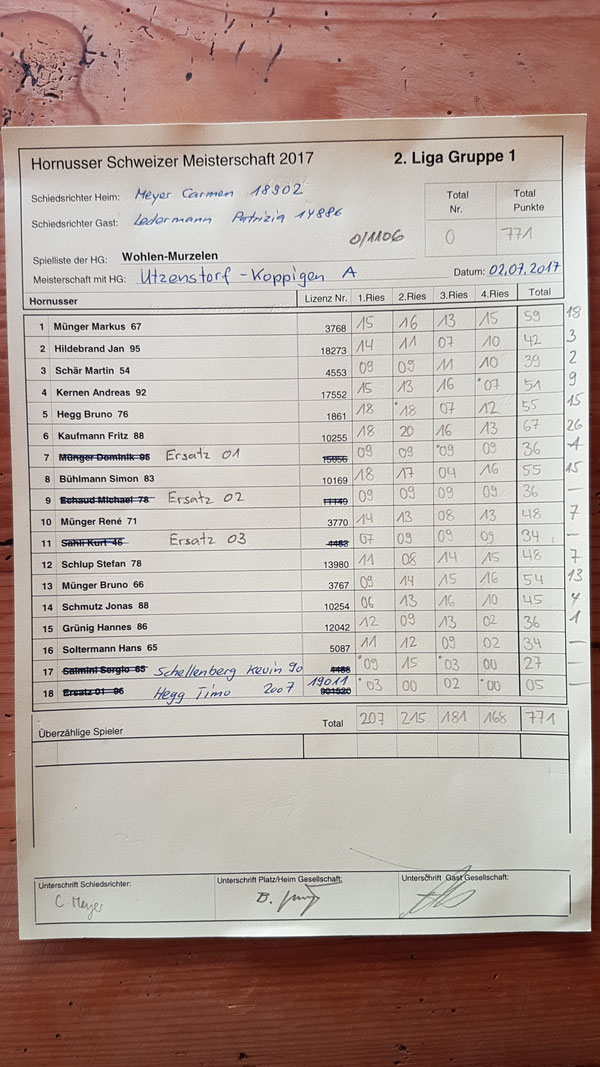 Hornusser Schweizer Meisterschaft 2017 2. Liga Gruppe 1
Schiedsrichter Heim: Meyer Carmen 18902
Schiedsrichter Gast: Ledermann Patrizia 14886
Total Nr. Total Punkte
0/1106 0 771
Spielliste der HG: Wohlen-Murzelen
Meisterschaft mit HG: Utzenstorf-Koppigen A Datum: 02.07.2017
Hornusser Lizenz Nr. 1.Ries 2.Ries 3.Ries 4.Ries Total
1 Münger Markus 67 3768 15 16 13 15 59 18
2 Hildebrand Jan 95 18273 14 11 07 10 42 3
3 Schär Martin 54 4553 09 09 11 10 39 2
4 Kernen Andreas 92 17552 15 13 16 07 51 9
5 Hegg Bruno 76 1861 18 18 07 12 55 15
6 Kaufmann Fritz 88 10255 18 20 16 13 67 26
7 Münger Dominik 95 Ersatz 01 09 09 09 09 36 1
8 Bühlmann Simon 83 10169 18 17 04 16 55 15
9 Echaud Michael 78 Ersatz 02 11149 09 09 09 09 36 –
10 Münger René 71 3770 14 13 08 13 48 7
11 Sahli Kurt 46 Ersatz 03 4483 07 09 09 09 34 –
12 Schlup Stefan 78 13980 11 08 14 15 48 7
13 Münger Bruno 66 3767 09 14 15 16 54 13
14 Schmutz Jonas 88 10254 06 13 16 10 45 4
15 Grünig Hannes 86 12042 12 09 13 02 36 1
16 Soltermann Hans 65 5087 11 12 09 02 34 –
17 Salmini Sergio 65 Schellenberg Kevin 90 4488 09 15 03 00 27 –
18 Ersatz 01 96 Hegg Timo 2007 19011 901520 03 00 02 00 05 –
Total 207 215 181 168 771
Überzählige Spieler
Unterschrift Schiedsrichter: Unterschrift Platz/Heim Gesellschaft: Unterschrift Gast Gesellschaft:
C. Meyer